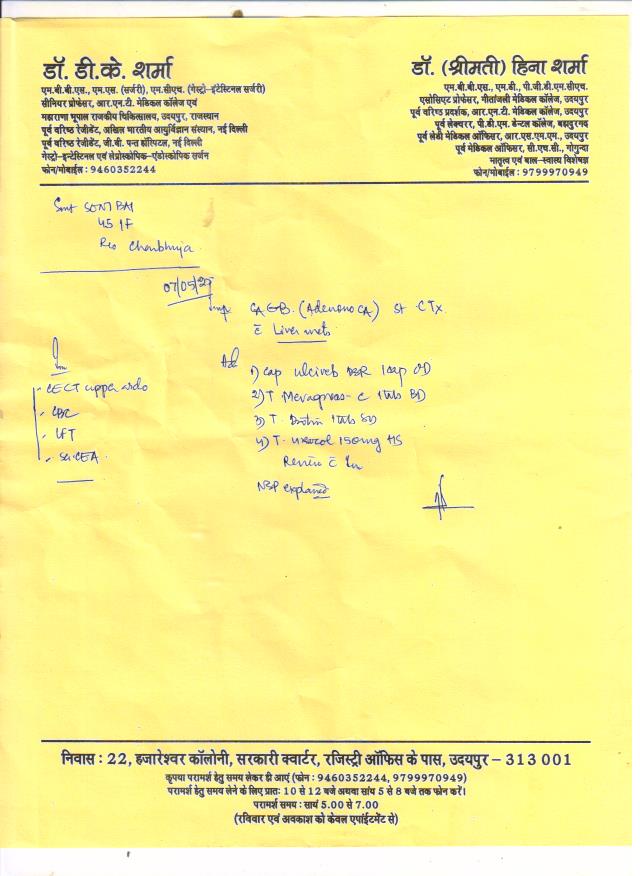 डॉ. डी.के. शर्मा
एम.बी.बी.एस., एम.एस. (सर्जरी), एम.सीएच. (गेस्ट्रो-इंटेस्टिनल सर्जरी)
सीनियर प्रोफेसर, आर.एन.टी. मेडिकल कॉलेज एवं
महाराणा भूपाल राजकीय चिकित्सालय, उदयपुर, राजस्थान
पूर्व वरिष्ठ रेजीडेंट, अखिल भारतीय आयुर्विज्ञान संस्थान, नई दिल्ली
पूर्व वरिष्ठ रेजीडेंट, जी.बी. पन्त हॉस्पिटल, नई दिल्ली
गेस्ट्रो-इन्टेस्टिनल एवं लेप्रोस्कोपिक-एंडोस्कोपिक सर्जन
फोन/मोबाईल : 9460352244
डॉ. (श्रीमती) हिना शर्मा
एम.बी.बी.एस., एम.डी., पी.जी.डी.एम.सीएच.
एसोसिएट प्रोफेसर, गीतांजली मेडिकल कॉलेज, उदयपुर
पूर्व वरिष्ठ प्रदर्शक, आर.एन.टी. मेडिकल कॉलेज, उदयपुर
पूर्व लेक्चरर, पी.डी.एम. डेन्टल कॉलेज, बहादुरगढ़
पूर्व लेडी मेडिकल ऑफिसर, आर.एस.एम.एम., उदयपुर
पूर्व मेडिकल ऑफिसर, सी.एच.सी., गोगुन्दा
मातृत्व एवं बाल-स्वास्थ्य विशेषज्ञ
फोन/मोबाईल : 9799970949
Smt SONI BAI
45 / F
R/o Charbhuja
07/05/29
Imp CA GB. (Adeno CA) st CTx
c̄ Liver mets
CECT upper abdo
CBC
LFT
Sr. CEA
Adv
1) cap DSR 1cap OD
2) T. 1tab BD
3) T. 1tab
4) T. 150mg HS
Review c̄ Inv
explained
निवास : 22, हजारेश्वर कॉलोनी, सरकारी क्वार्टर, रजिस्ट्री ऑफिस के पास, उदयपुर – 313 001
कृपया परामर्श हेतु समय लेकर ही आएं (फोन : 9460352244, 9799970949)
परामर्श हेतु समय लेने के लिए प्रातः 10 से 12 बजे अथवा सांय 5 से 8 बजे तक फोन करें।
परामर्श समय : सायं 5.00 से 7.00
(रविवार एवं अवकाश को केवल एपाईंटमेंट से)